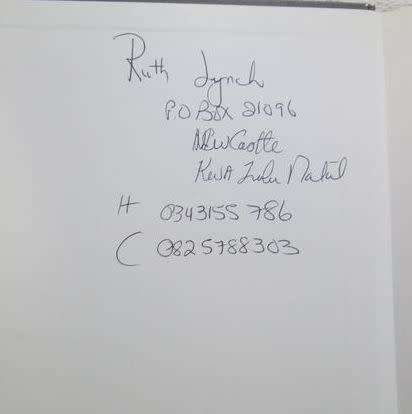 Ruth Lynch
PO Box 21096
NewCastle
KwA Zulu Natal
H 0343155 786
C 0825788303